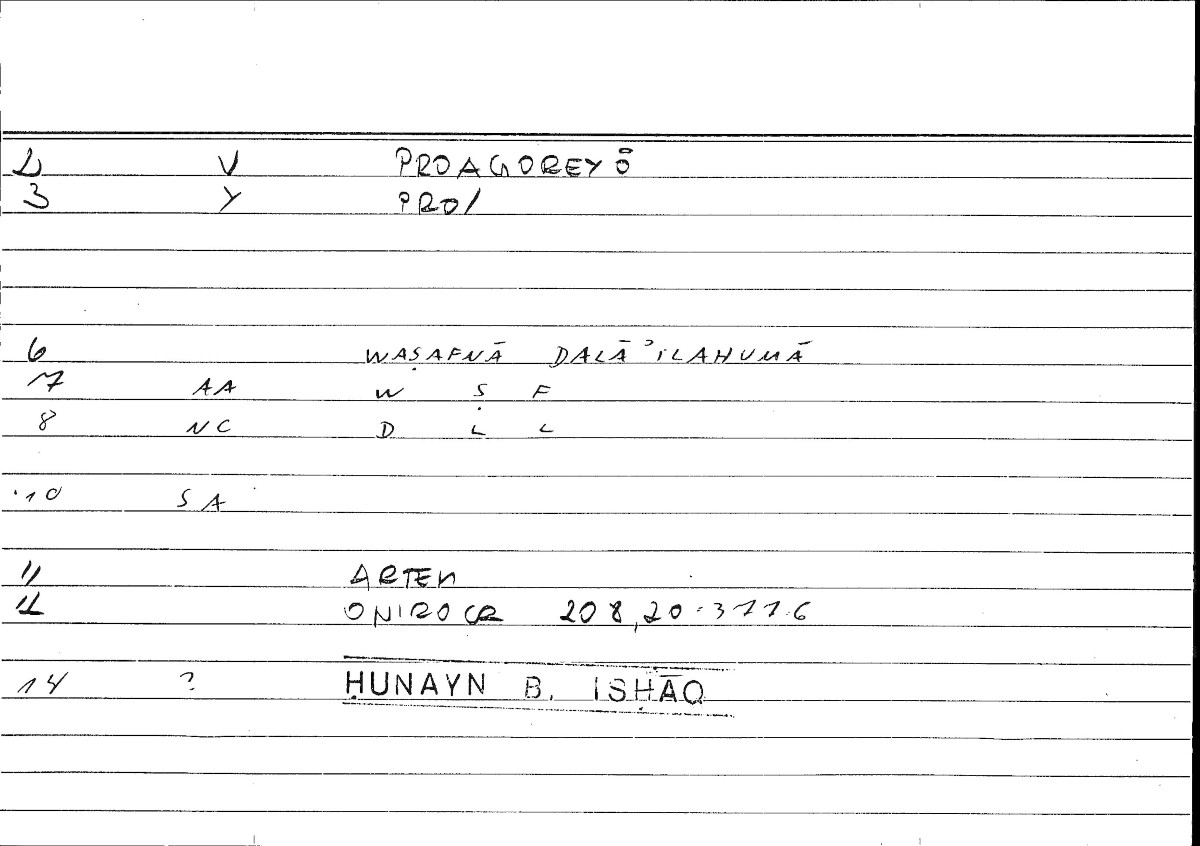 2 V PROAGOREYŌ
3 Y PRO/
6 WAṢAFNĀ DALĀʾILAHUMĀ
7 AA W Ṣ F
8 NC D L L
10 SA
11 ARTEM
12 ONIROCR 208,20-311.6
14 ? ḤUNAYN B. ISḤĀQ